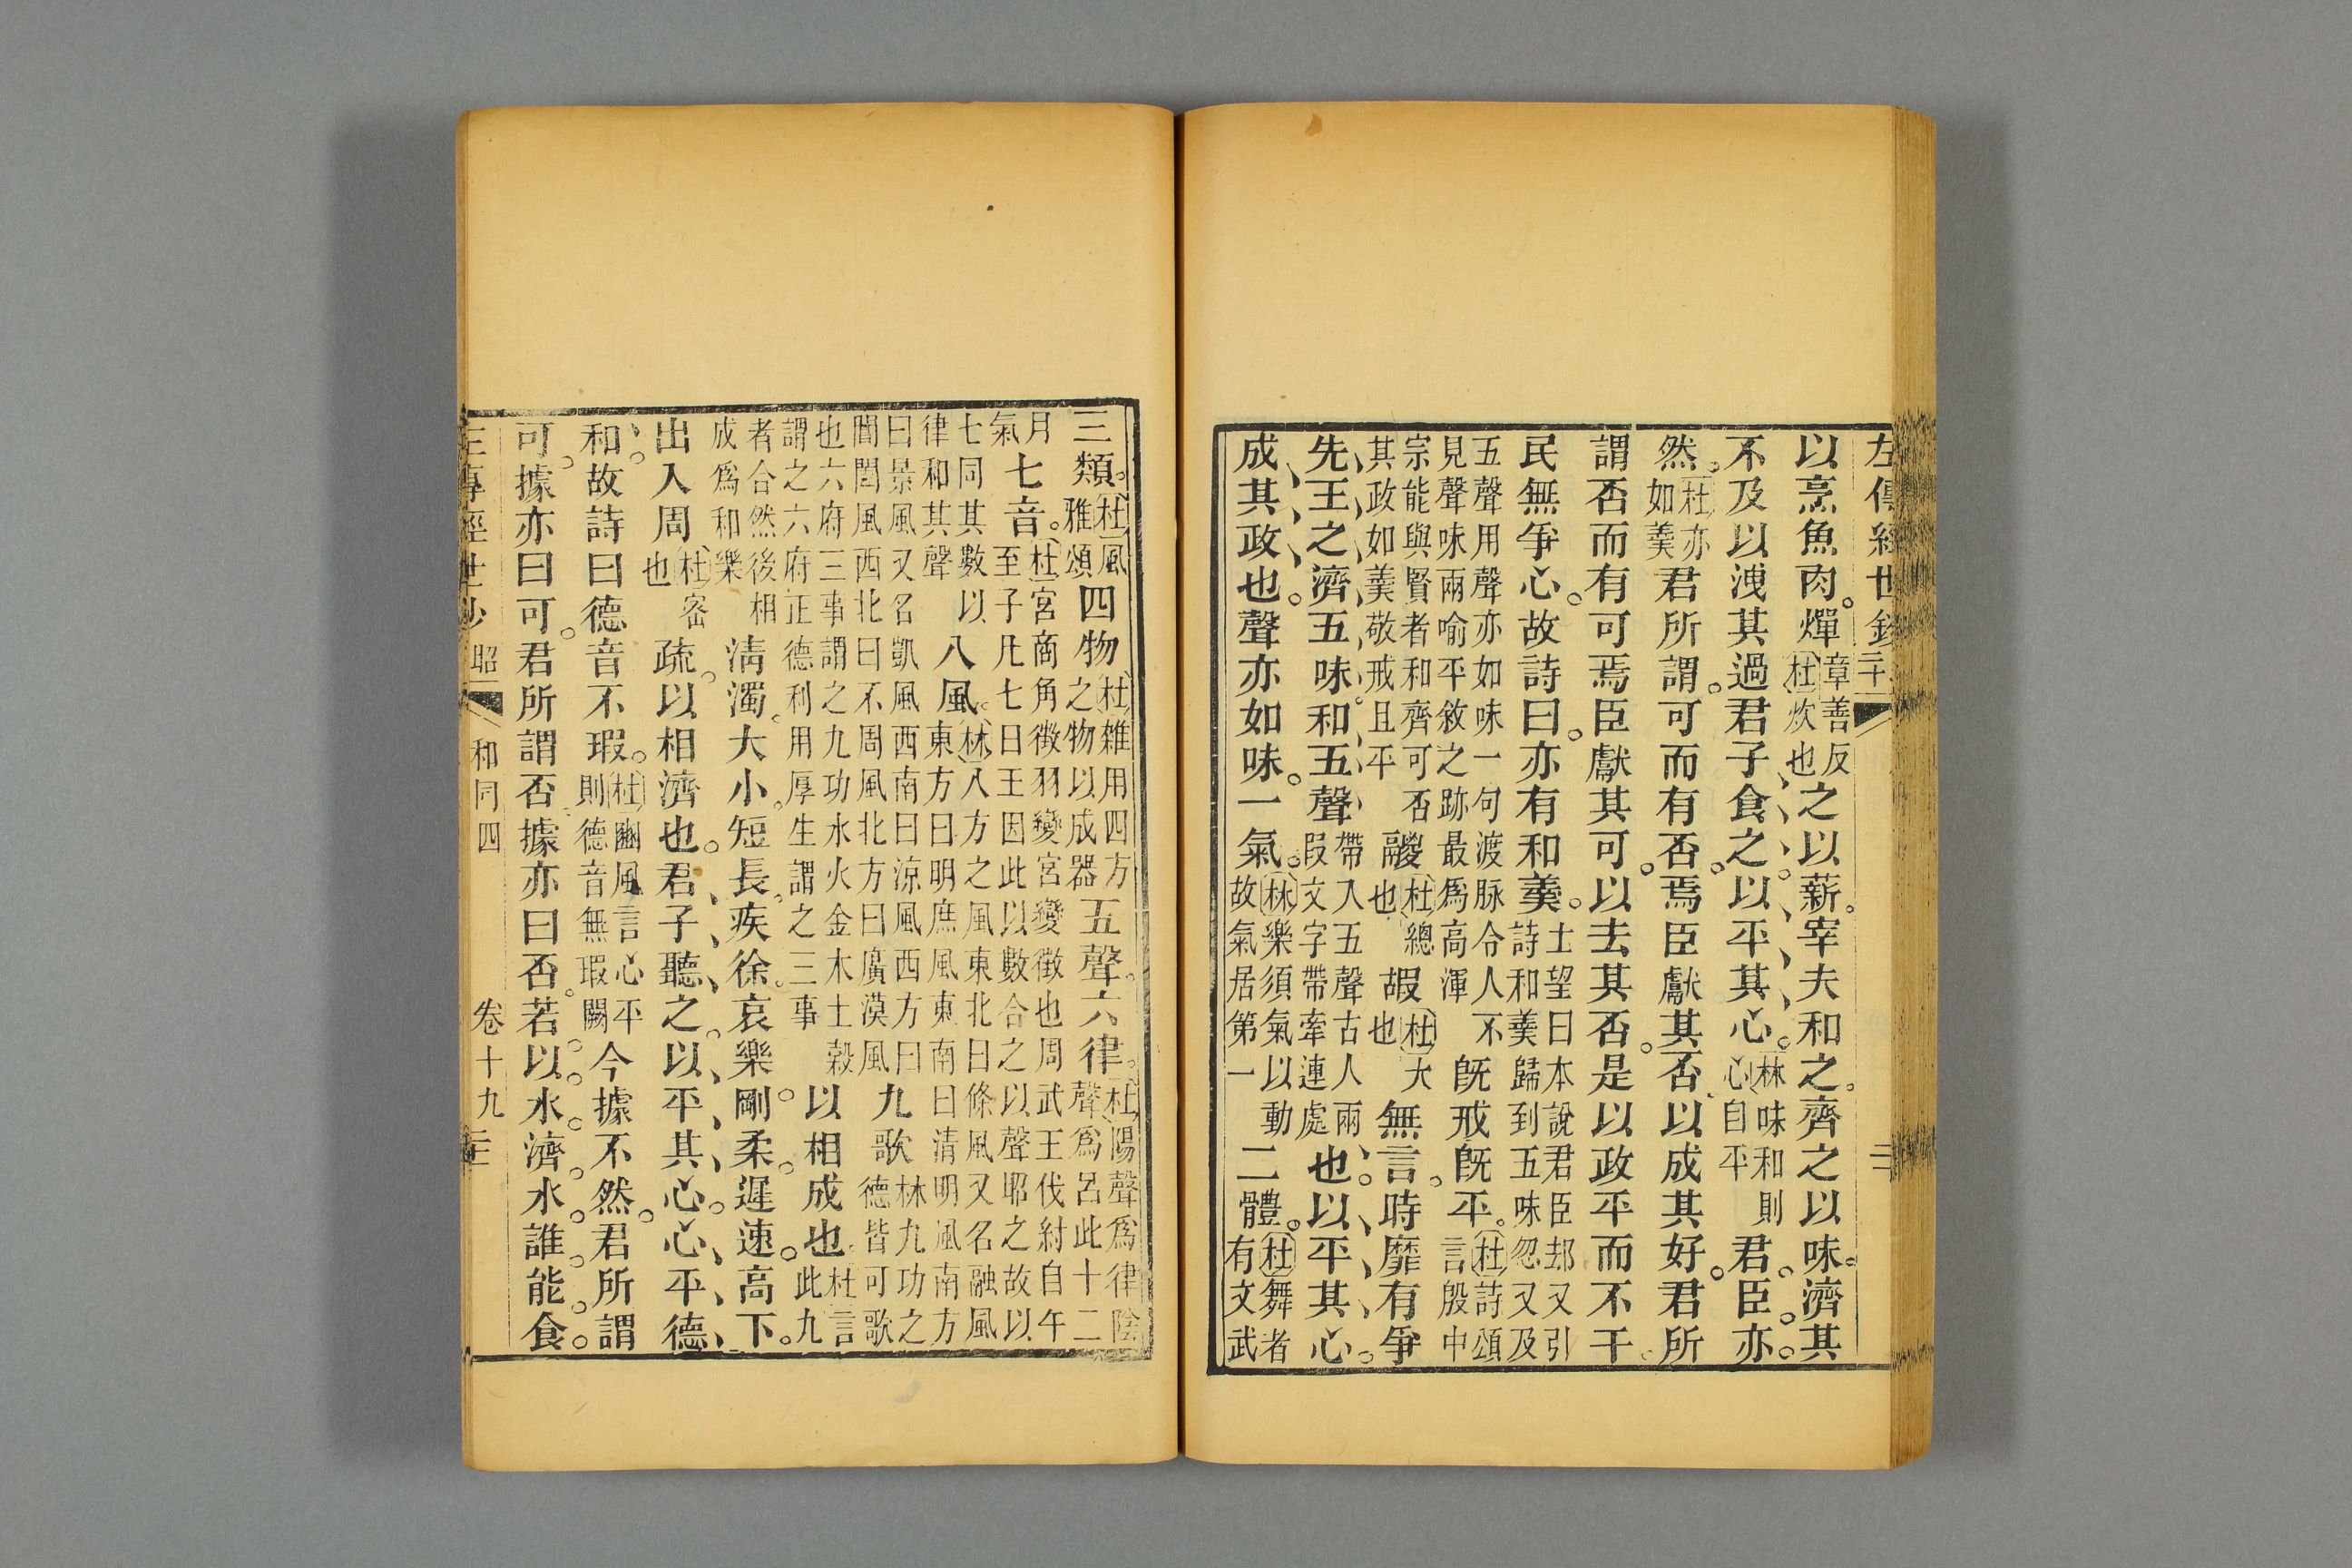 左傳經世鈔
以烹魚肉。燀章善反杜炊也之以薪。宰夫和之。齊之以味。濟其
不及以洩其過君子食之。以平其心。林味和則心自平君臣亦
然。杜亦如羹君所謂。可而有否。焉臣獻其否以成其好。君所
謂否而有可焉臣獻其可。以去其否。是以政平而不干。
民無爭心。故詩曰。亦有和羹。士望曰本說君臣却又引詩和羹歸到五味忽又及
五聲用聲亦如味一句渡脉令人不見聲味兩喻平敘之跡最爲高渾既戒既平。杜詩頌言殷中
宗能與賢者和齊可否其政如羹敬戒且平鬷杜總也嘏杜大也無言。時靡有爭
先王之濟五味。和五聲帶入五聲古人兩叚文字帶牽連處也。以平其心。
成其政也。聲亦如味。一氣。林樂須氣以動故氣居第一二體。杜舞者有文武
三類。杜風雅頌四物杜雜用四方之物以成器五聲。六律。杜陽聲爲律陰聲爲呂此十二
月氣七音。杜宮商角徵羽變宮變徵也周武王伐紂自午至子凡七日王因此以數合之以聲耶之故以
七同其數以律和其聲八風。林八方之風東北曰條風又名融風東方曰明庶風東南曰清明風南方
曰景風又名凱風西南曰涼風西方曰閶闔風西北曰不周風北方曰廣漠風九歌林九功之德皆可歌
也六府三事謂之九功水火金木土穀謂之六府正德利用厚生謂之三事以相成也。杜言此九
者合然後相成爲和樂清濁。大小。短長。疾徐。哀樂。剛柔。遲速。高下。
出入周杜密也疏。以相濟也。君子聽之。以平其心。心平德
和。故詩曰德音不瑕。杜豳風言心平則德音無瑕闕今據不然。君所謂
可。據亦曰可。君所謂否。據亦曰否。若以水濟水。誰能食。
左傳經世鈔 昭 和同四 卷十九